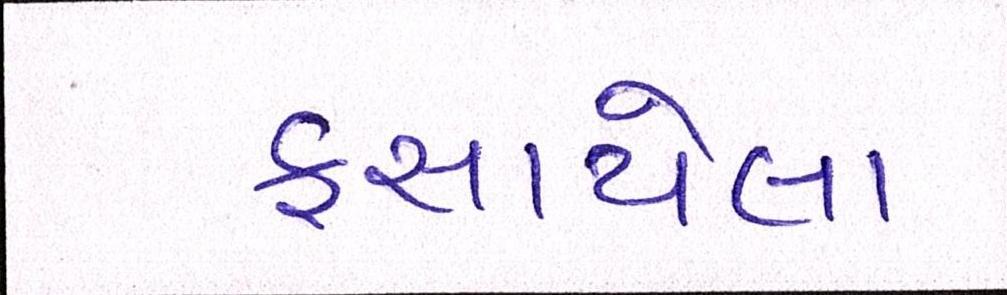 ફસાયેલા